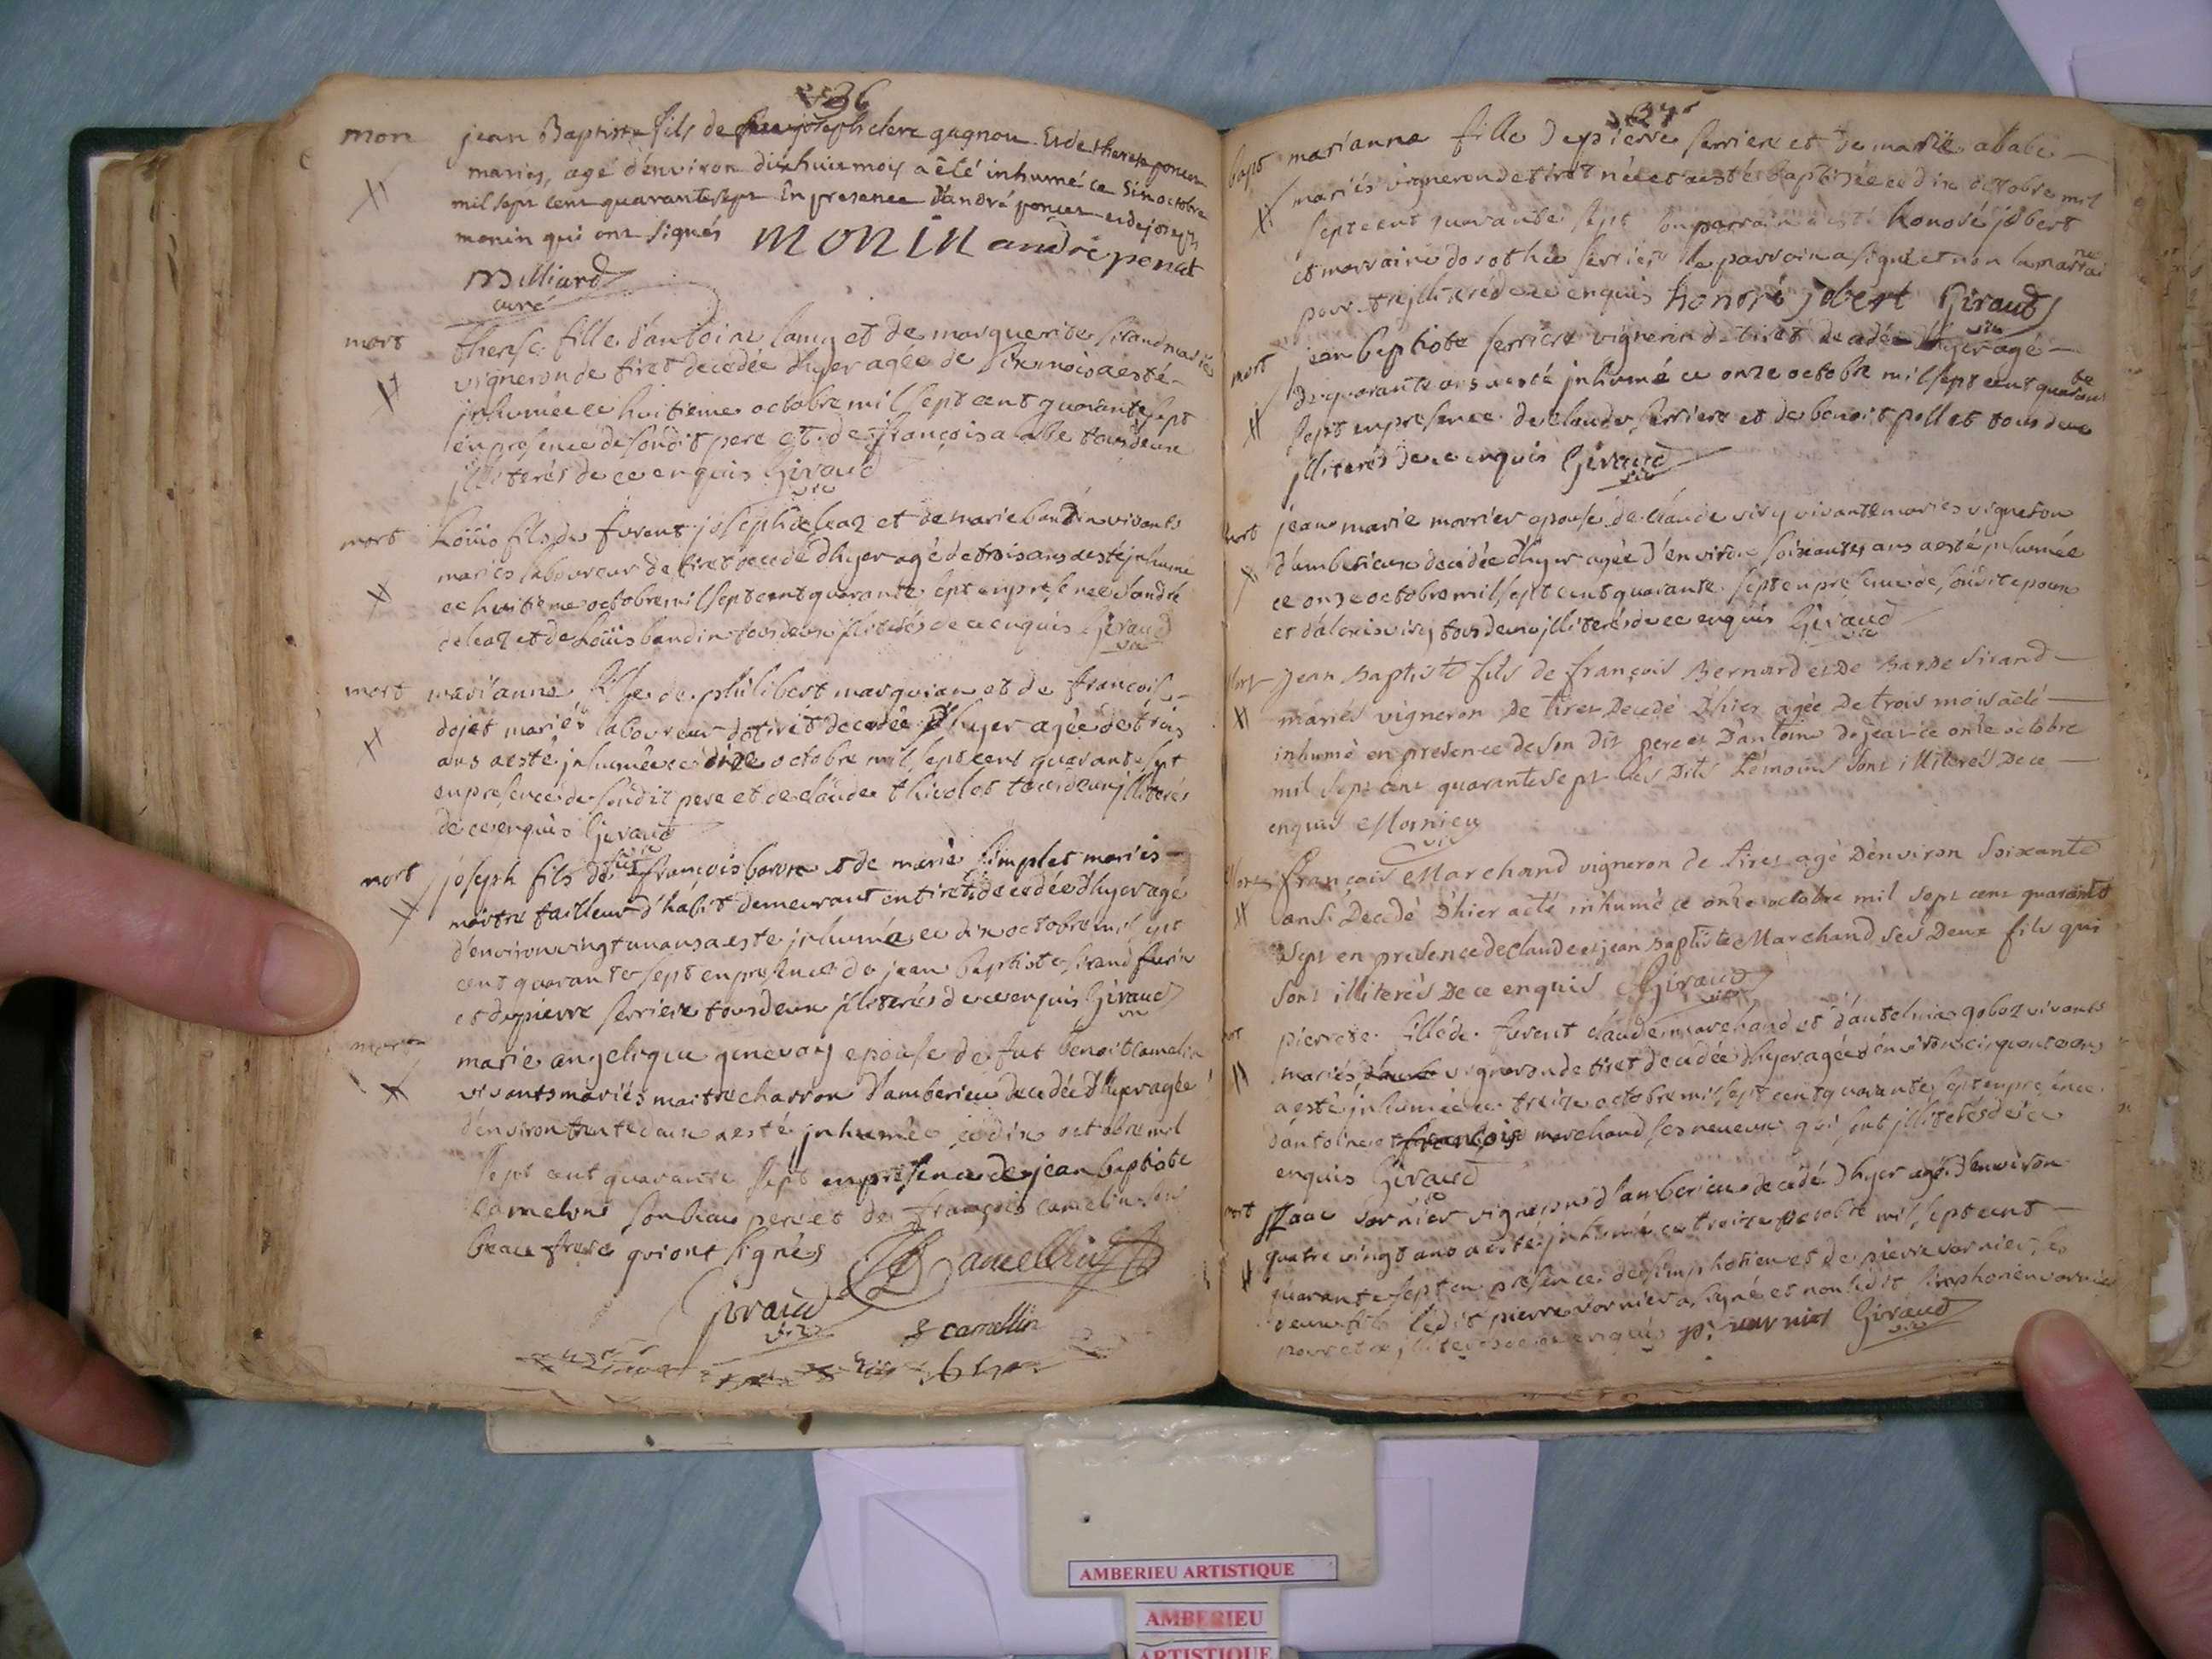 36
mort jean Baptiste fils de joseph clere gagnou Et de therese poncet
mariés, agé d'environ dixhuit mois a été inhumé ce Six octobre
mil sept cent quarante sept En presence d'andré poncet et de joseph
monin qui ont signés MONIN andré poncet
Milliard
curé
mort therese fille d'antoine lamy et de marguerite sirand mariés
vigneron de tiret decedée dhyer agée de six mois a esté
inhumée ce huitieme octobre mil sept cent quarante sept
en presence de son dit pere et de françois alabe tous deux
jlliterés de ce enquis Giraud
vic
mort Loüis fils de furent joseph deleaz et de marie baudin vivants
mariés laboureur de tiret decedé dhyer agé de trois ans a esté jnhumé
ce huitieme octobre mil sept cent quarante sept en presence d'andré
deleaz et de Loüis baudin tous deux jlliterés de ce enquis Giraud
vic
mort marianne fille de philibert marguian et de françoise
dojat mariés laboureur de tiret decedée d'hyer agée de trois
ans a esté jnhumée ce octobre mil sept cent quarante sept
en presence de son dit pere et de claude thicolet tous deux jlliterés
de ce enquis Giraud
vic
mort joseph fils de fut françois baron et de marie simplet mariés
maitre tailleur d'habit demeurant en tiret decedée dhyer agé
d'environ vingt un ans a este jnhumé ce dix octobre mil sept
cent quarante sept en presence de jean baptiste sirand
et de pierre serriere tous deux jlliterés de ce enquis Giraud
vic
mort marie angelique genevay epouse de fut benoit camelin
vivants mariés maitre charron d'amberieu decedée d'hyer agée
d'environ trente deux a esté jnhumée ce dix octobre mil
sept cent quarante sept en presence de jean baptiste
camelin son beau pere et de françois camelin son
beau frere qui ont signés JB Camellin
Giraud
vic f camellin
37
bapt marianne fille de pierre serriere et de marie alabe
mariés vigneron de tiret née et a esté baptisée ce dix octobre mil
sept cent quarante sept son parrain a esté honoré jobert
et marraine dorothée serriere le parrain a signé et non la marraine
pour etre jlliterée de ce enquis honoré jobert Giraud
vic
mort jean baptiste serriere vigneron de tiret decedée dhyer agé
de quarante ans a esté jnhumé ce onze octobre mil sept cent quarante
sept en presence de claude serriere et de benoit pollet tous deux
jlliterés de ce enquis Giraud
vic
mort jean marie morrier epouse de claude vicy vivante mariés vigneron
d'amberieux decedée dhyer agée d'environ soixante ans a esté jnhumée
ce onze octobre mil sept cent quarante sept en presence de son dit epoux
et d'alexis vicy tous deux jlliterés de ce enquis Giraud
vic
Mort Jean Baptiste fils de françois Bernard et De Sirand
mariés vigneron De tiret Decedé D'hier agée De trois mois a été
inhumé en presence de son dit pere et D'antoine Dojat ce onze octobre
mil sept cent quarante sept les Dits témoins sont illiterés De ce
enquis Mornieu
vic
Mort françois Marchand vigneron de tiret agé D'environ Soixante
ans Decedé D'hier a été inhumé ce onze octobre mil sept cent quarante
sept en presence de claude et jean baptiste Marchand ses Deux fils qui
sont illiterés De ce enquis Giraud
vic
mort pierrete fille de furent claude marchand et d'antelmine goboz vivants
mariés vigneron de tiret decedée dhyer agée d'environ cinquante ans
a esté jnhumée ce treize octobre mil sept cent quarante sept en presence
d'antoine et françois marchand ses neveux qui sont jlliterés de ce
enquis Giraud
mort jsaac vornier vigneron d'amberieu decedé d'hyer agé d'environ
quatre vingt ans a esté jnhumé ce treize octobre mil sept cent
quarante sept en presence de simphorien et de pierre vornier ses
deux fils ledit pierre vornier a signé et non ledit simphorien vornier
pour etre jlliteré de ce enquis p. vornier Giraud
vic
AMBERIEU ARTISTIQUE
AMBERIEU
ARTISTIQUE